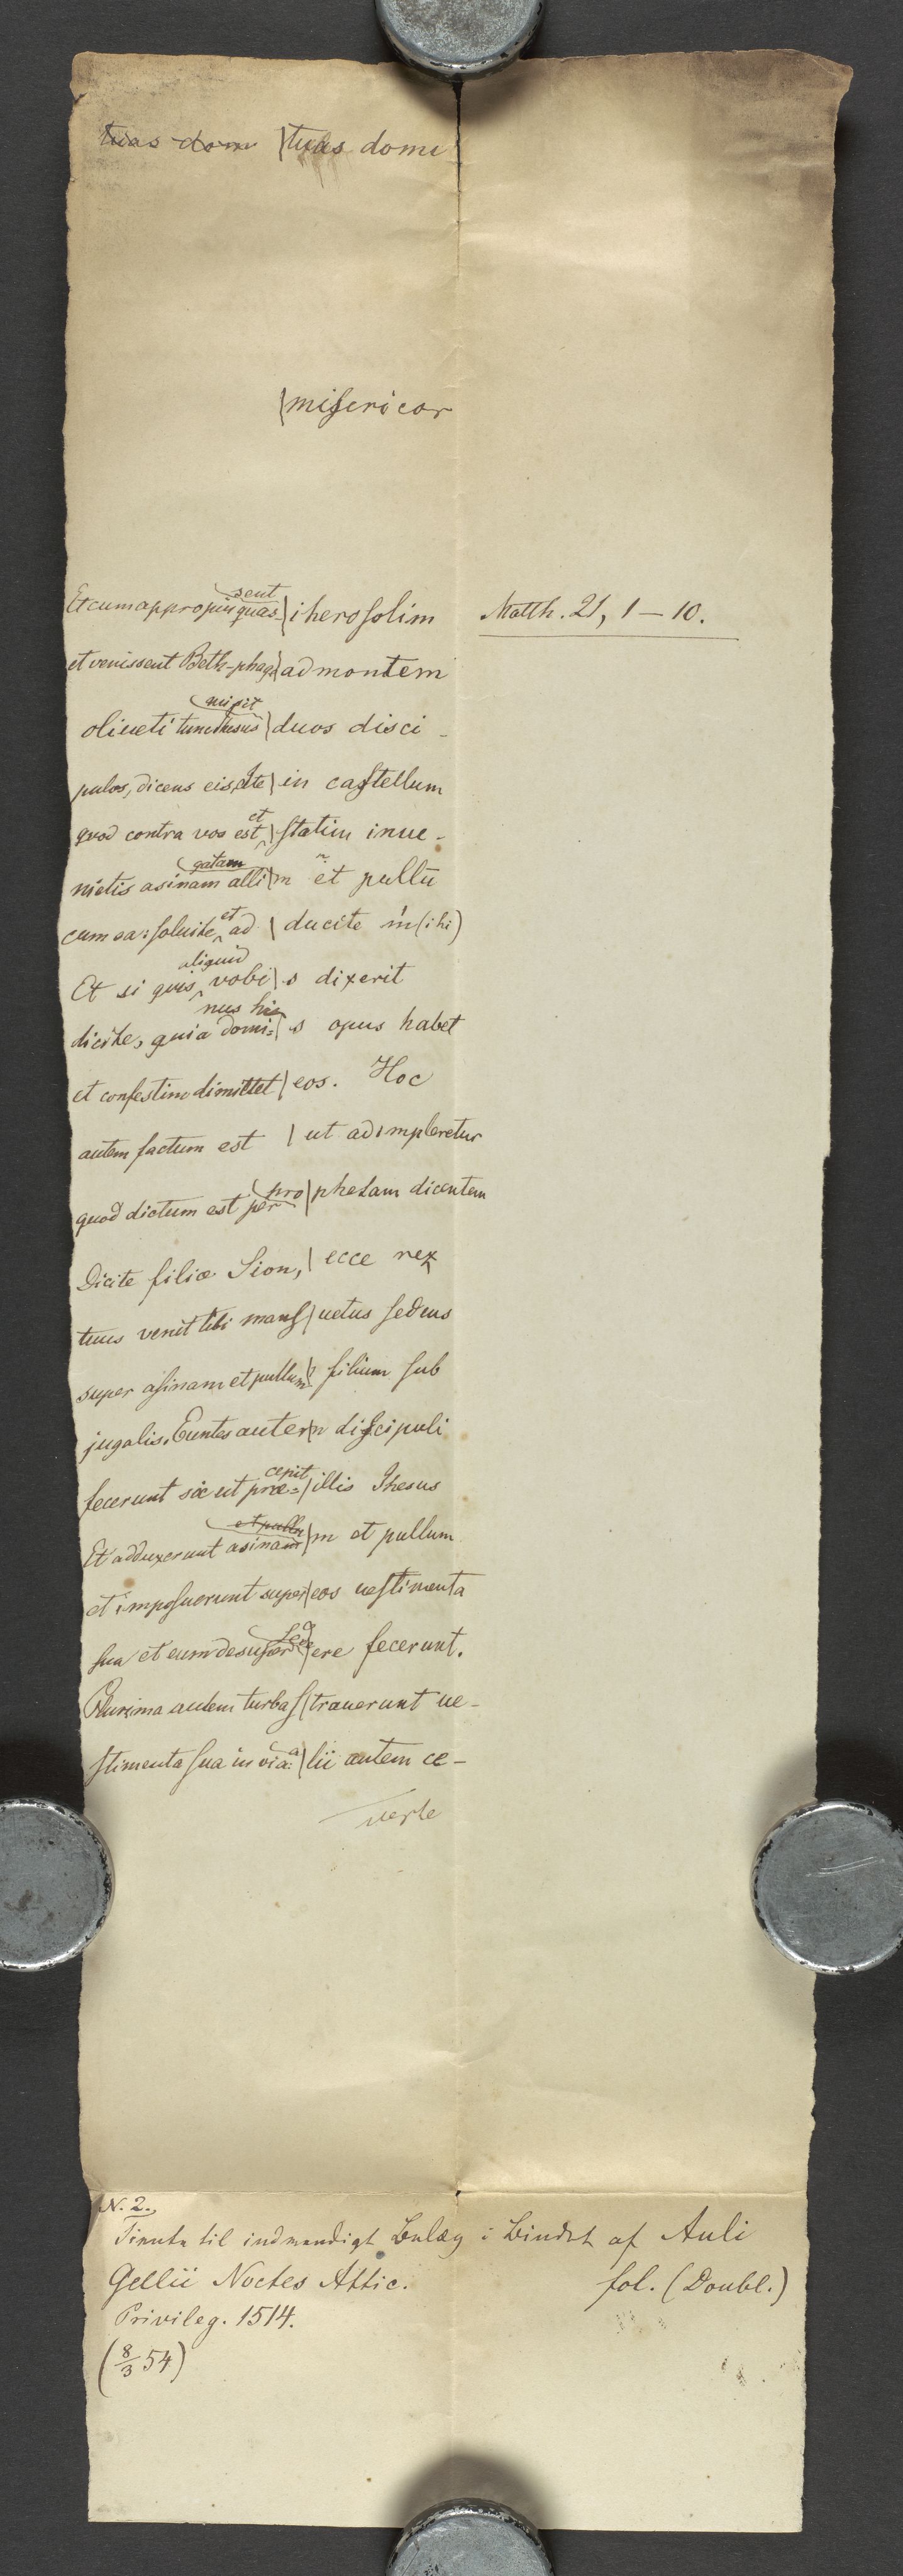 tuas dom \tuas domi
\misericor
sent
Et cum appropin quas \iherosolim Matth. 21, 1 – 10.
et venissent Beth-phage \ad montem
misit
oliueti tunc Ihesus \duos disci -
pulos, dicens eis, Ite \in castellum
et
quod contra vos est, \statim inue -
gatam
nietis asinam alli\m et pullū
et
cum ea: soluite ad \ducite m(ihi)
aliquid
Et si quis vobi\s dixerit
nus hi
dicite, quia domi= \s opus habet
et confestim dimittet \eos. Hoc
autem factum est \ut adimpleretur
pro
quod dictum est per \phetam dicentem
Dicite filiæ Sion, \ecce rex
tuus venit tibi mans\uetus sedens
super asinam et pullum \filium sub
jugalis. Euntes autem\m discipuli
cepit
fecerunt sic ut præ= \illis Ihesus
et pullu
Et adduxerunt asinam \m et pullum
et imposuerunt super \eos uestimenta
sed
sua et eum desuper \ere fecerunt.
Plurima autem turba s\trauerunt ue -
a
stimenta sua in via: \lii autem ce -
verte
N. 2.
til indvendigt Belæg i Bindet af Auli
Gellii Noctes Attic. fol. (Doubl.)
Privileg. 1514.
(8/3 54)